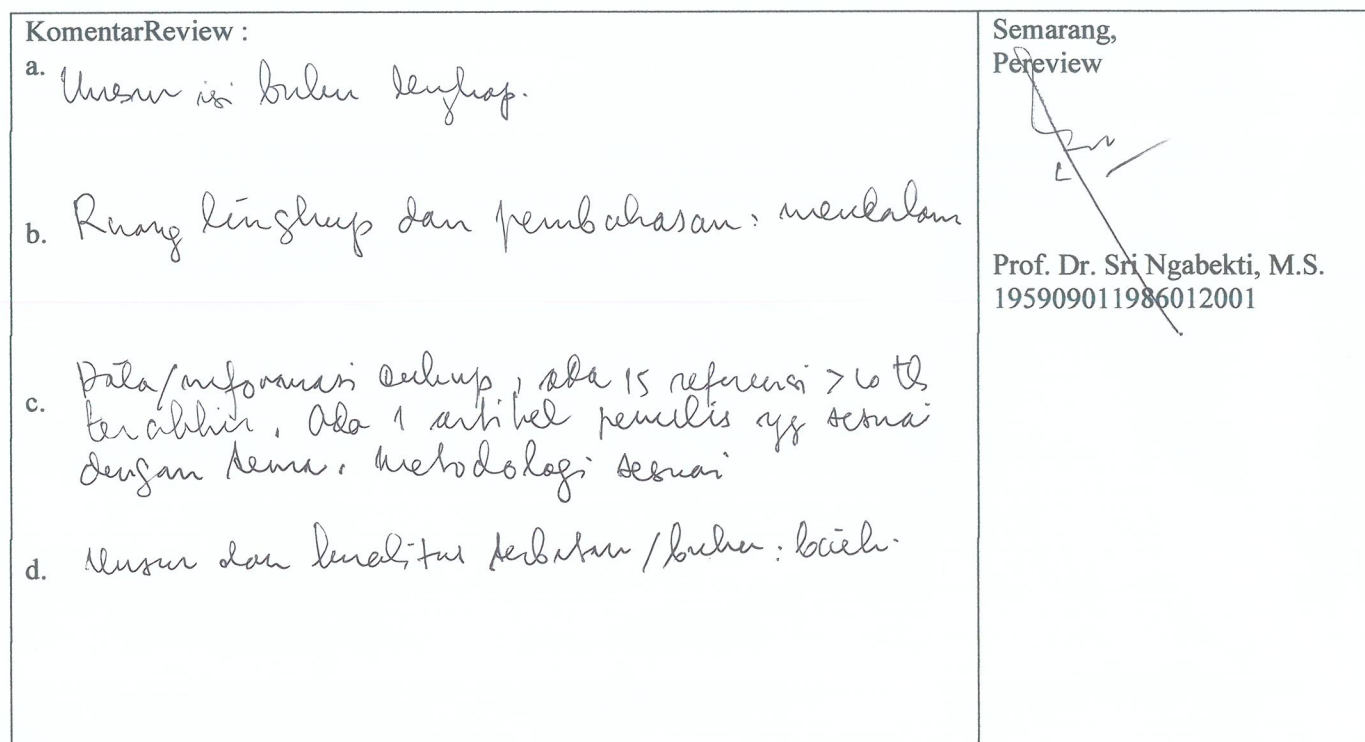 KomentarReview :
a. Unsur isi buku lengkap.
b. Ruang lingkup dan pembahasan: mendalam
c. Data/informasi cukup, ada 15 referensi > 10 th
terakhir. Ada 1 artikel penulis yg sesuai
dengan tema. Metodologi sesuai
d. Unsur dan kualitas terbitan/buku: baik.
Semarang,
Pereview
Prof. Dr. Sri Ngabekti, M.S.
195909011986012001